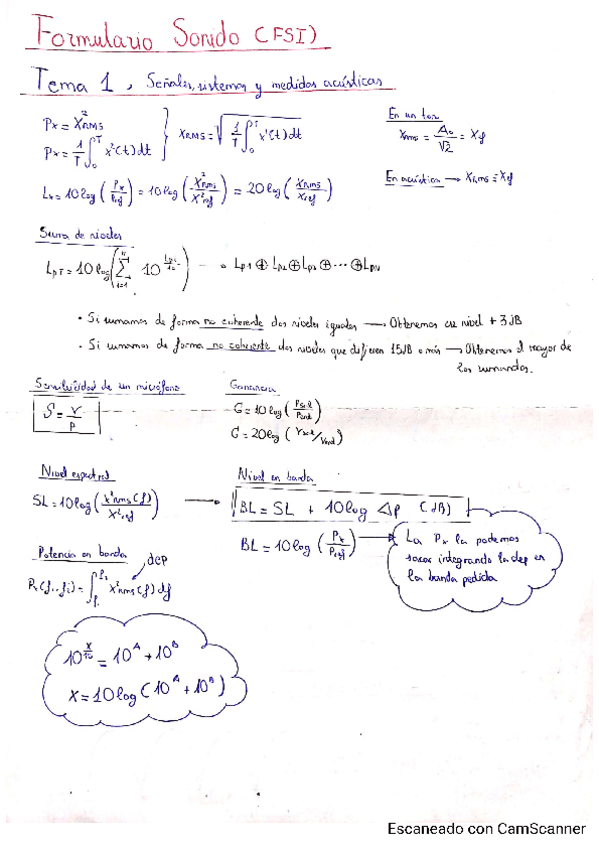 Formulario Sonido (FSI)
Tema 1, Señales, sistemas y medidas acústicas
Px = X²RMS
Px = 1/T ∫₀ᵀ x²(t) dt } XRMS = √(1/T ∫₀ᵀ x²(t) dt)
En un tono
XRMS = A₀/√2 = Xef
Lx = 10 log (Px/Pref) = 10 log (X²RMS/X²ref) = 20 log (XRMS/Xref)
En acústica → XRMS = Xef
Suma de niveles
LpT = 10 log (∑ᵢ₌₁ᴺ 10^(Lpi/10)) → Lp1 ⊕ Lp2 ⊕ Lp3 ⊕ ... ⊕ LpN
• Si sumamos de forma no coherente dos niveles iguales → Obtenemos ese nivel + 3 dB
• Si sumamos de forma no coherente dos niveles que difieren 15dB o más → Obtenemos el mayor de
los sumandos.
Sensibilidad de un micrófono
S = V/P
Ganancia
G = 10 log (Psal/Pent)
G = 20 log (Vsal/Vent)
Nivel espectral
SL = 10 log (X²RMS(f)/X²ref) →
Nivel en banda
BL = SL + 10 log Δf (dB)
BL = 10 log (Px/Pref) →
La Px la podemos
sacar integrando la dep en
la banda pedida
Potencia en banda
dep
Px(f₁,f₂) = ∫ X²RMS(f) df
10^(x/10) = 10^A + 10^B
x = 10 log (10^A + 10^B)
Escaneado con CamScanner